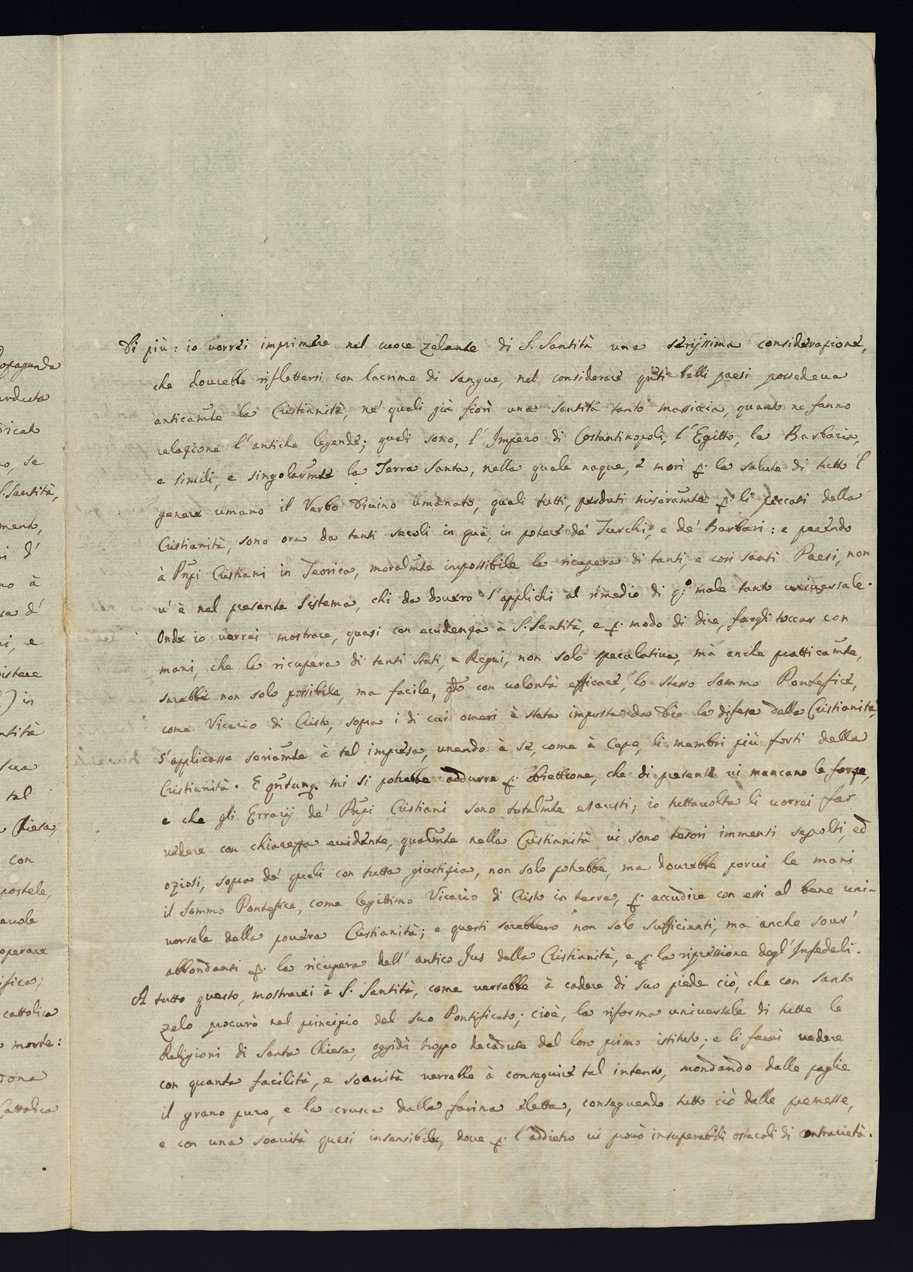 opaganda
erduta
ricato
no, se
S. Santità,
mento,
ni d'
no à
ra d'
ni, e
istere
) in
ntità
sua
tal
Chiesa,
con
postele,
auole
operare
ifica,
cattolica
morte:
dona
Cattolica
Di più: io vorrei imprimere nel cuore zelante di S. Santità una serijssima considerazione,
che dourebbe riflettersi con lacrime di sangue, nel considerare qnti belli paesi possedeua
anticamte la Cristianità, ne' quali già fiorì una santità tanto massiccia, quanto ne fanno
relazione l'antiche legende; quali sono, l'Impero di Costantinopoli, l'Egitto, la Barbaria,
e simili, e singolarmte la Terra Santa, nella quale naque, e morì p. la salute di tutto 'l
genere umano il Verbo Diuino umanato, quali tutti, perduti miseramte p. li peccati della
Cristianità, sono ora da tanti secoli in quà, in potere de' Turchi, e de' Barbari: e parendo
à Pnpi Cristiani in Teorica, moralmte impossibile la ricupera di tanti, e così santi Paesi, non
u' è nel presente sistema, chi da douero s'applichi al rimedio di qo male tanto uniuersale.
Onde io vorrei mostrare, quasi con euidenza à S. Santità, e p. modo di dire, fargli toccar con
mani, che la ricupera di tanti stati, e Regni, non solo speculatiua, mà anche pratticamte,
sarebbe non solo possibile, ma facile, qdo con volontà efficace, lo stesso Sommo Pontefice,
come Vicario di Cristo, sopra i di cui omeri è stata imposta da Dio la difesa della Cristianità,
s'applicasse seriamte à tal impresa, unendo à se, come à Capo, li membri più forti della
Cristianità. E qntunq. mi si potrebbe addurre p. obiettione, che di presente ui mancano le forze,
e che gli Errarij de' Pnpi Cristiani sono totalmte esausti; io tuttauolta li vorrei far
vedere con chiarezza euidente, qualmte nella Cristianità ui sono tesori immensi sepolti, ed
oziosi, sopra de' quali con tutta giustizia, non solo potrebbe, ma dourebbe porui le mani
il Sommo Pontefice, come legittimo Vicario di Cristo in terra, p. accudire con essi al bene uni-
uersale della pouera Cristianità; e questi sarebbero non solo sufficienti, ma anche sour'
abbondanti p. la ricupera dell' antico Jus della Cristianità, e p. la ripressione degl' Infedeli.
A tutto questo, mostrarei à S. Santità, come verrebbe à cadere di suo piede ciò, che con santo
zelo procurò nel principio del suo Pontificato; cioè, la riforma uniuersale di tutte le
Religioni di Santa Chiesa, oggidì troppo decadute dal loro primo istituto; e li farei vedere
con quanta facilità, e soauità verrebbe à conseguire tal intento, mondando dalle paglie
il grano puro, e la crusca dalla farina eletta, conseguendo tutto ciò dalle premesse,
e con una soauità quasi insensibile, doue p. l'addietro ui prouò insuperabili ostacoli di contrarietà.